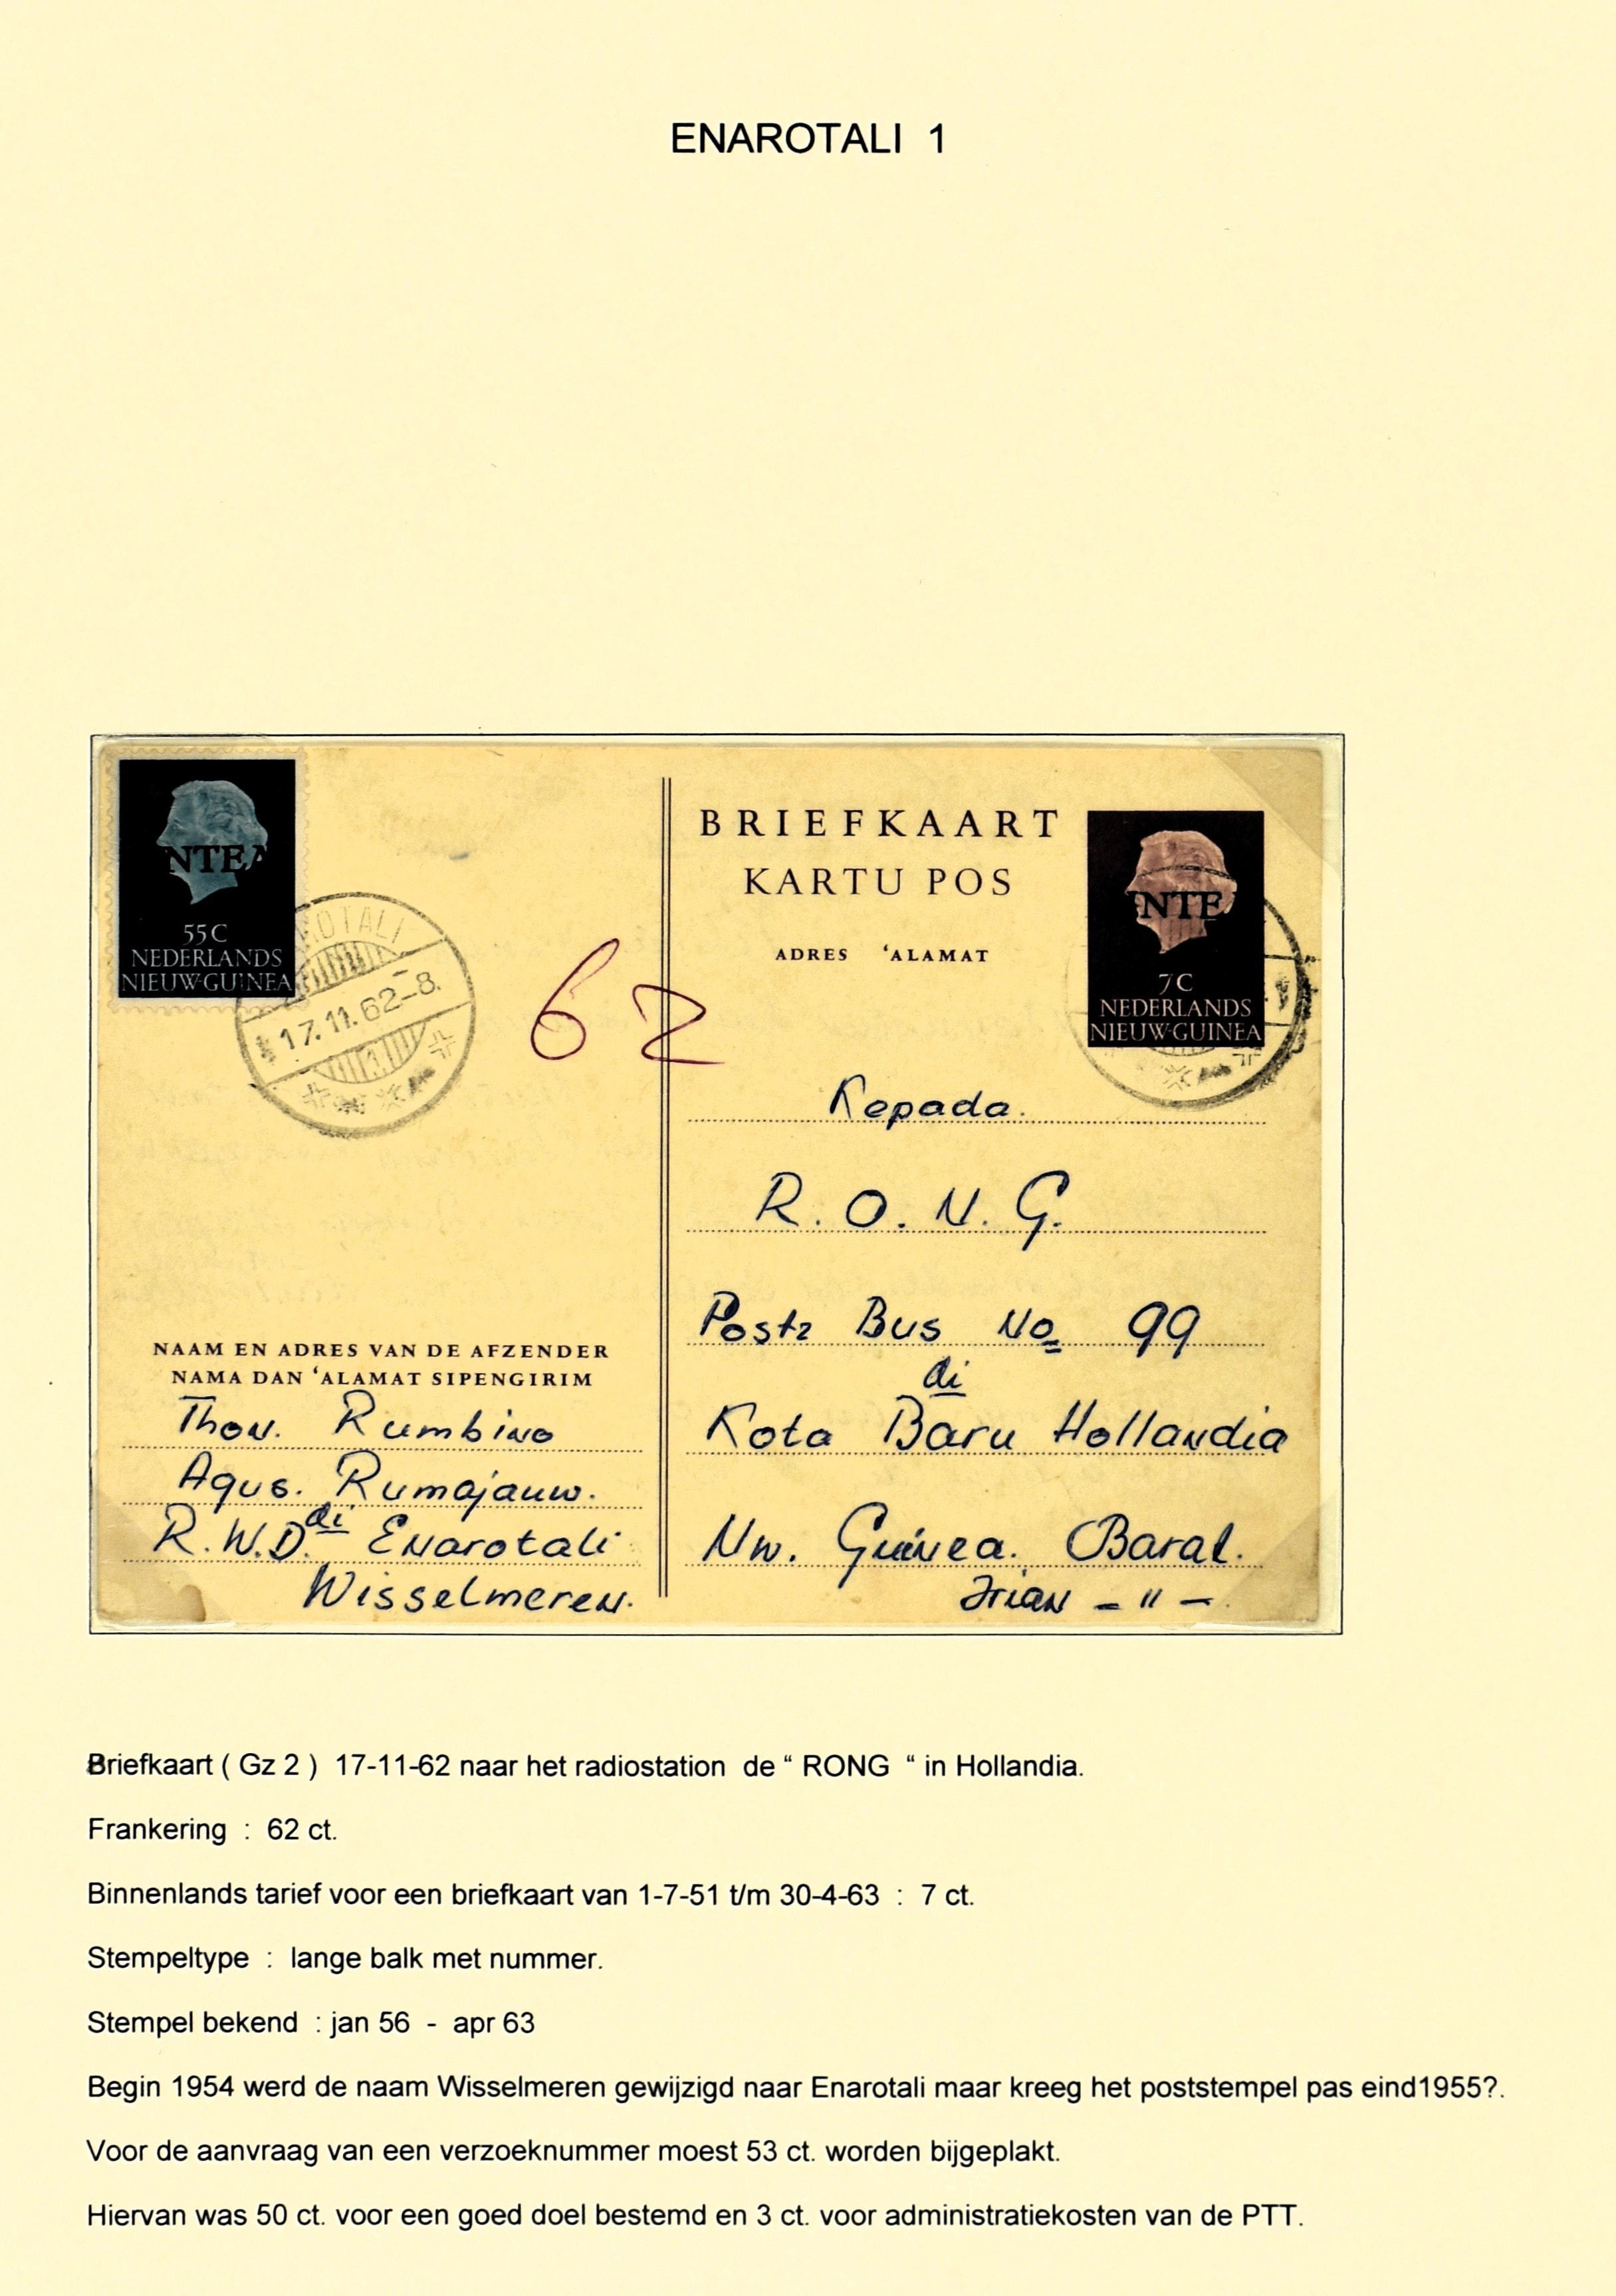 ENAROTALI 1
NTEA
55C
NEDERLANDS
NIEUW-GUINEA
ROTALI
17.11.62-8.
1
62
BRIEFKAART
KARTU POS
ADRES 'ALAMAT
NTE
7C
NEDERLANDS
NIEUW-GUINEA
Kepada.
R. O. N. G.
Postz Bus No 99
di
Kota Baru Hollandia
Nw. Guinea. Barat.
Irian - " -.
NAAM EN ADRES VAN DE AFZENDER
NAMA DAN 'ALAMAT SIPENGIRIM
Thon. Rumbino
Agus. Rumajauw.
R.W.D. di Enarotali
Wisselmeren.
Briefkaart ( Gz 2 ) 17-11-62 naar het radiostation de “ RONG “ in Hollandia.
Frankering : 62 ct.
Binnenlands tarief voor een briefkaart van 1-7-51 t/m 30-4-63 : 7 ct.
Stempeltype : lange balk met nummer.
Stempel bekend : jan 56 - apr 63
Begin 1954 werd de naam Wisselmeren gewijzigd naar Enarotali maar kreeg het poststempel pas eind1955?.
Voor de aanvraag van een verzoeknummer moest 53 ct. worden bijgeplakt.
Hiervan was 50 ct. voor een goed doel bestemd en 3 ct. voor administratiekosten van de PTT.